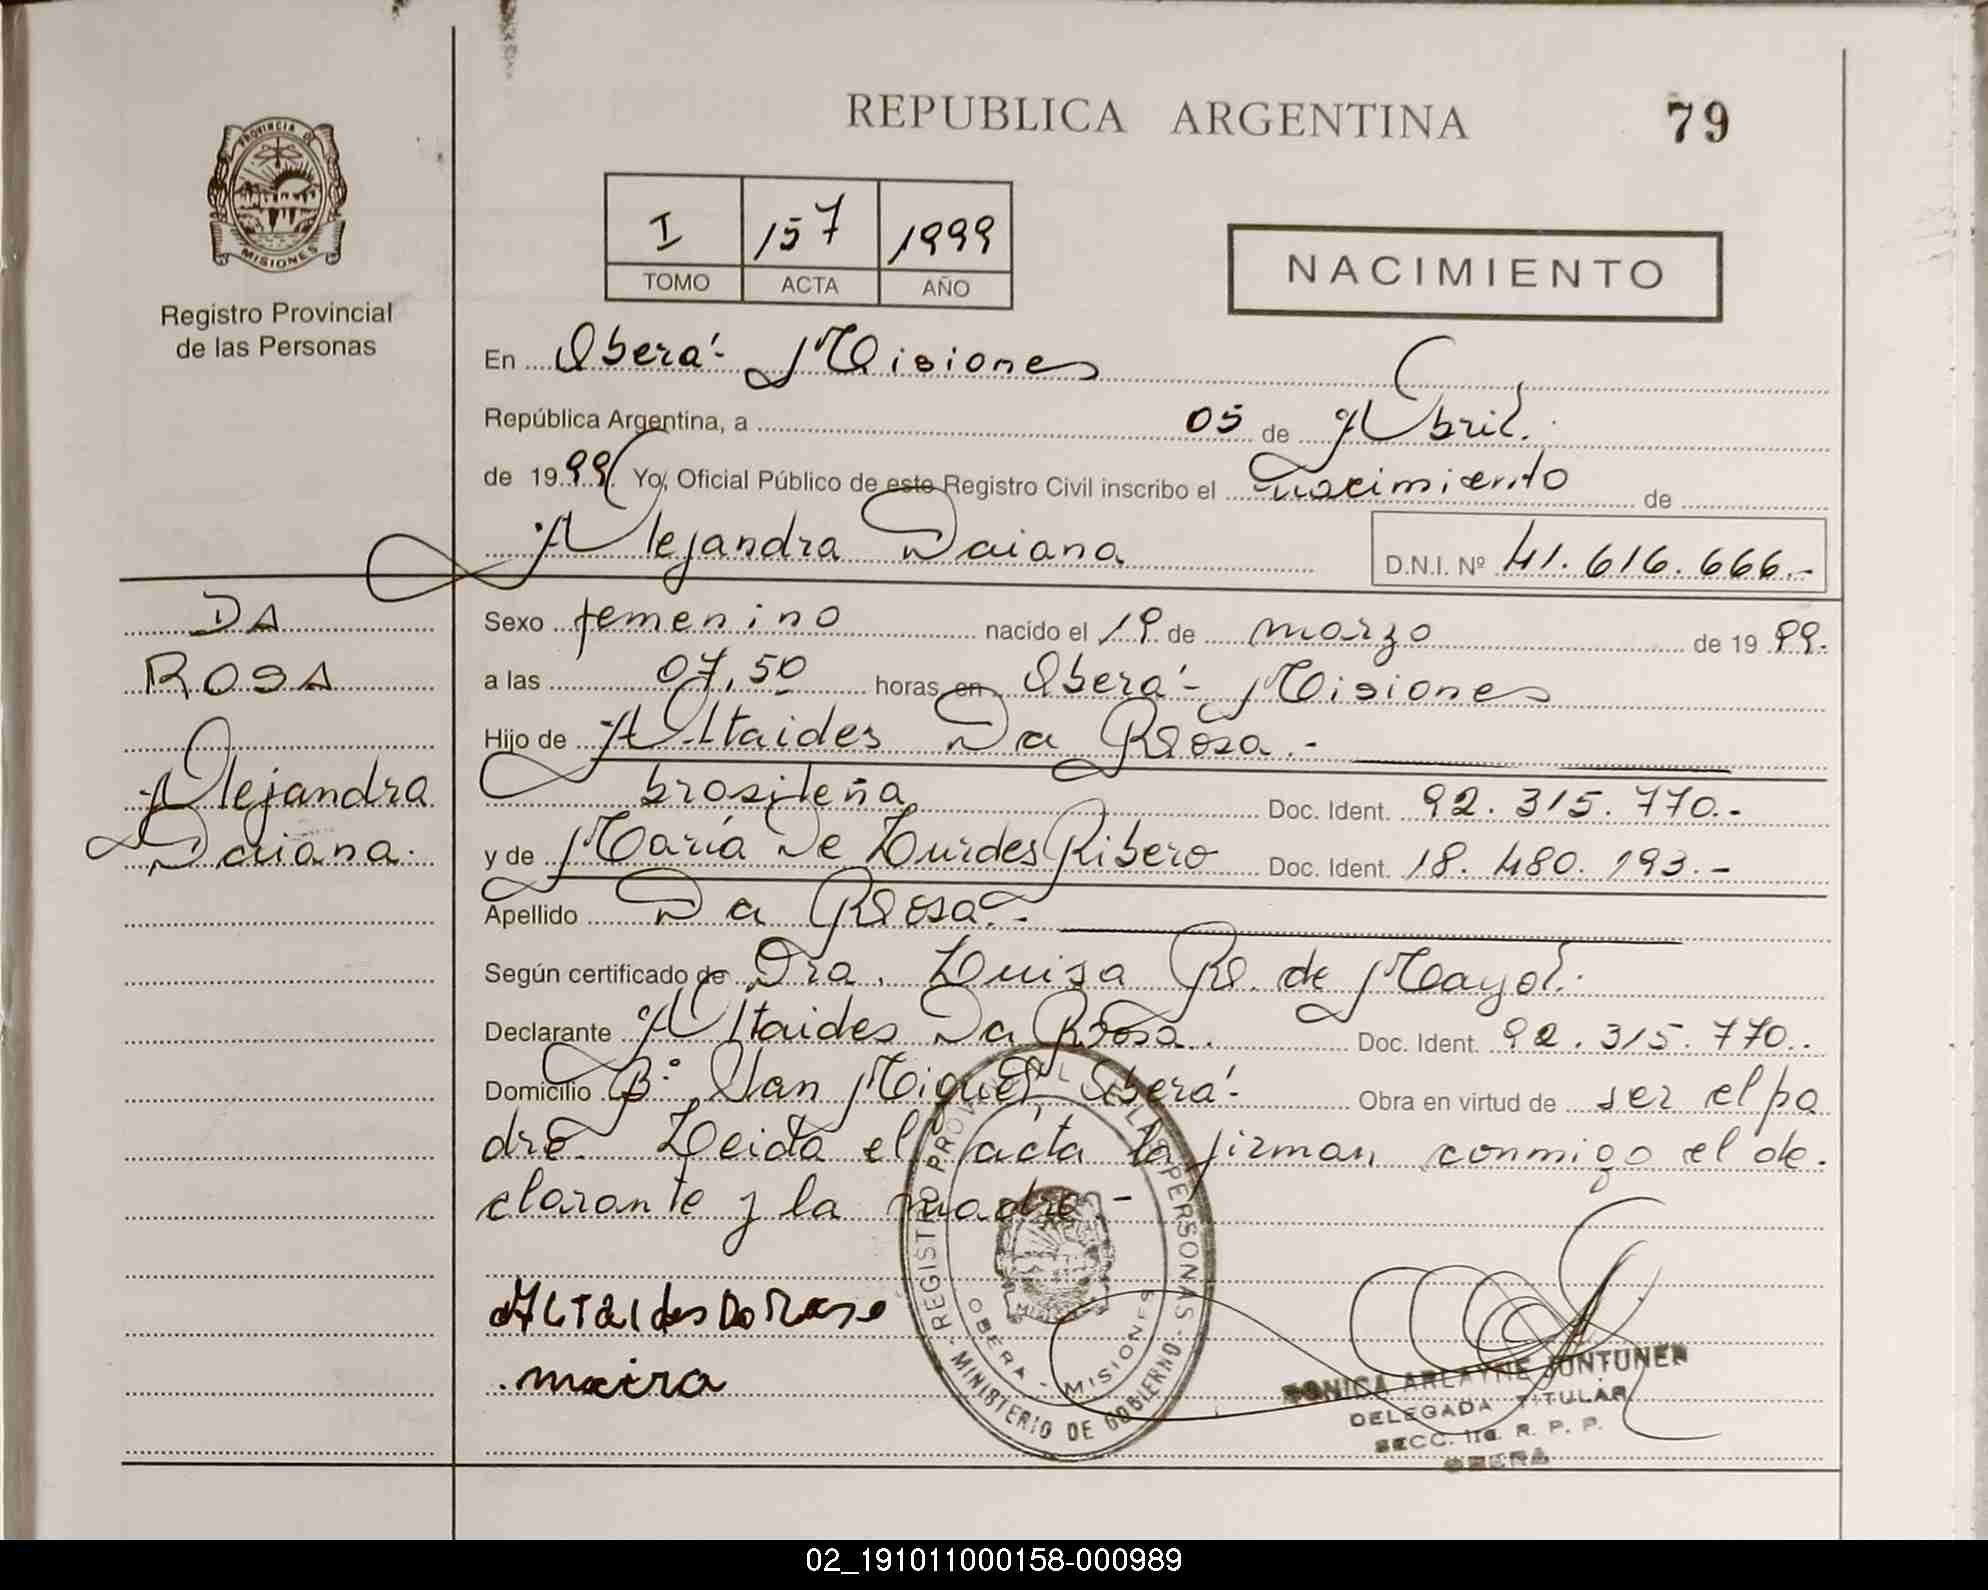 REPUBLICA ARGENTINA
79
PROVINCIA DE
MISIONES
Registro Provincial
de las Personas
I 157 1999
TOMO ACTA AÑO
NACIMIENTO
En Oberá - Misiones
República Argentina, a 05 de Abril.
de 1999. Yo, Oficial Público de este Registro Civil inscribo el nacimiento de
Alejandra Daiana D.N.I. Nº 41.616.666.-
DA
ROSA
Alejandra
Daiana.
Sexo femenino nacido el 19 de marzo de 1999.
a las 07,50 horas en Oberá - Misiones
Hijo de Altaides Da Rosa.-
brasileña Doc. Ident. 92.315.770.-
y de María De Lurdes Ribero Doc. Ident. 18.480.193.-
Apellido Da Rosa.-
Según certificado de Dra. Luisa R. de Mayol.
Declarante Altaides Da Rosa. Doc. Ident. 92.315.770..
Domicilio Bº San Miguel, Oberá - Obra en virtud de ser el pa
dre. Leida el acta la firman conmigo el de.
clarante y la madre -
Altaides Da Rosa
maira
REGISTRO PROVINCIAL DE LAS PERSONAS
MINISTERIO DE GOBIERNO
OBERA - MISIONES
MISIONES
SONICA ARLAYNE JONTUNEN
DELEGADA TITULAR
SECC. 1ra. R. P. P.
OBERA
02_191011000158-000989